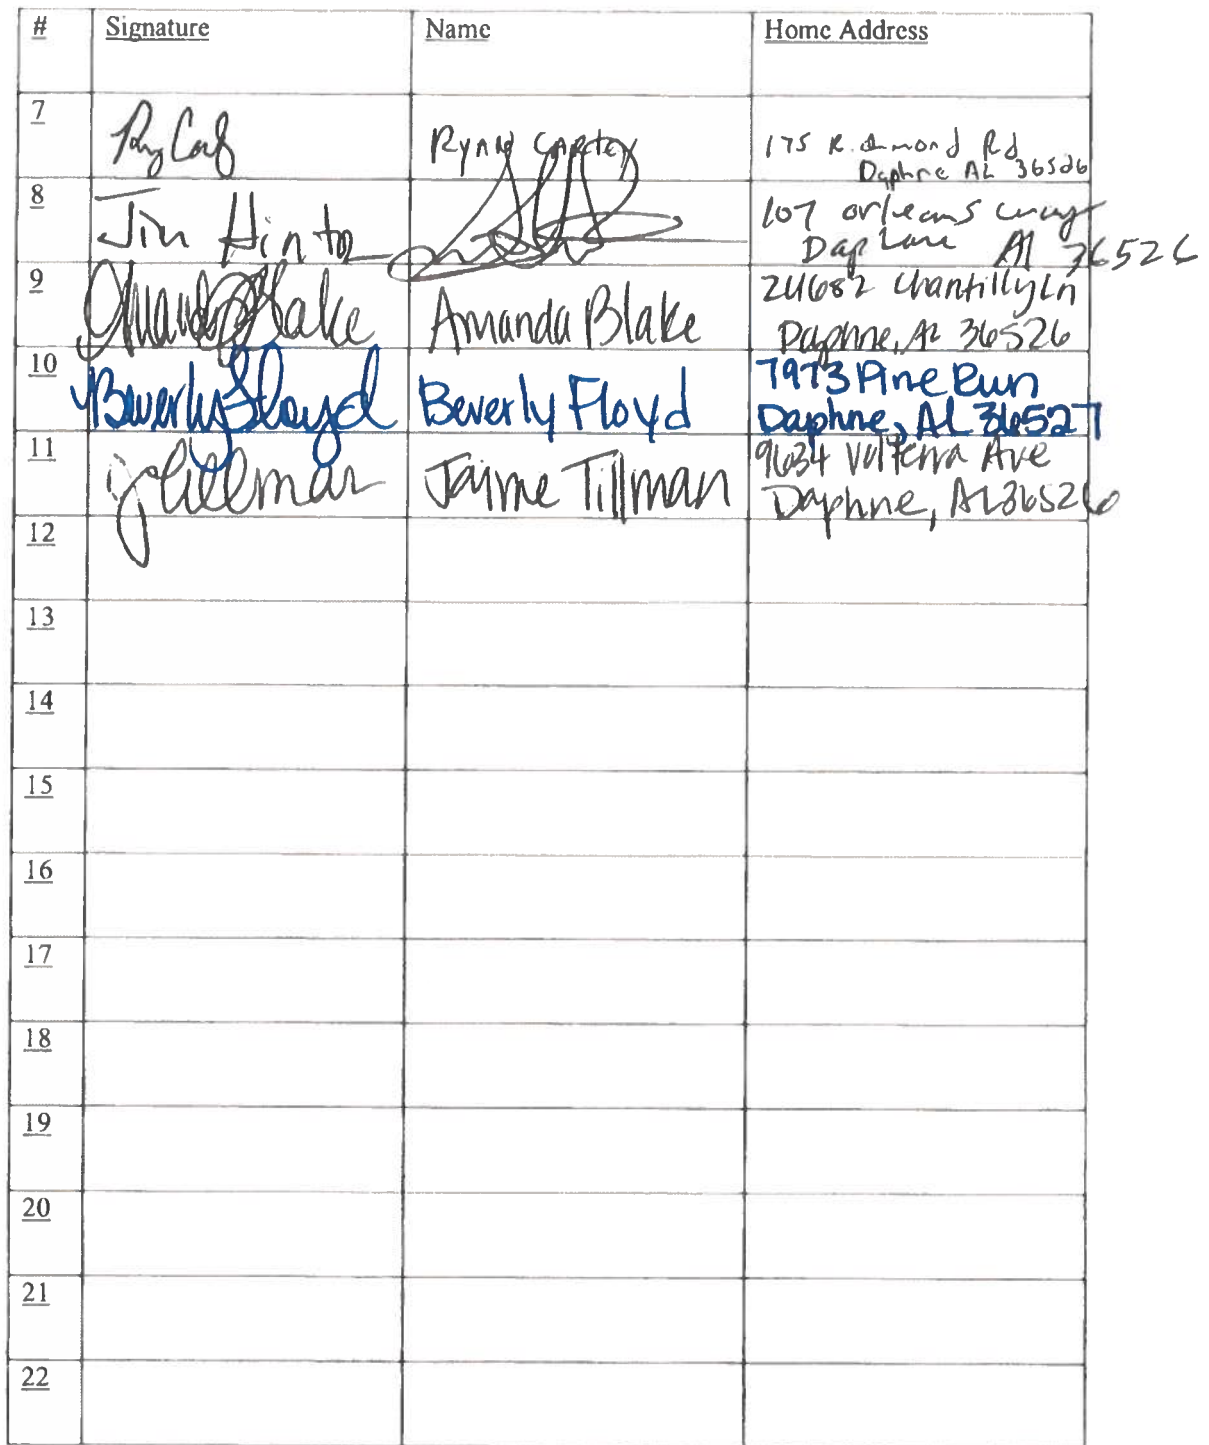 # Signature Name Home Address
7 Rynn Carter 175 Richmond Rd
Daphne AL 36526
8 Jim Hinton 107 orleans way
Daphne Al 36526
9 Amanda Blake Amanda Blake 24682 Chantilly Ln
Daphne, AL 36526
10 Beverly Floyd Beverly Floyd 7973 Pine Run
Daphne, AL 36527
11 JTillman Jaime Tillman 9634 Volterra Ave
Daphne, AL 36526
12
13
14
15
16
17
18
19
20
21
22